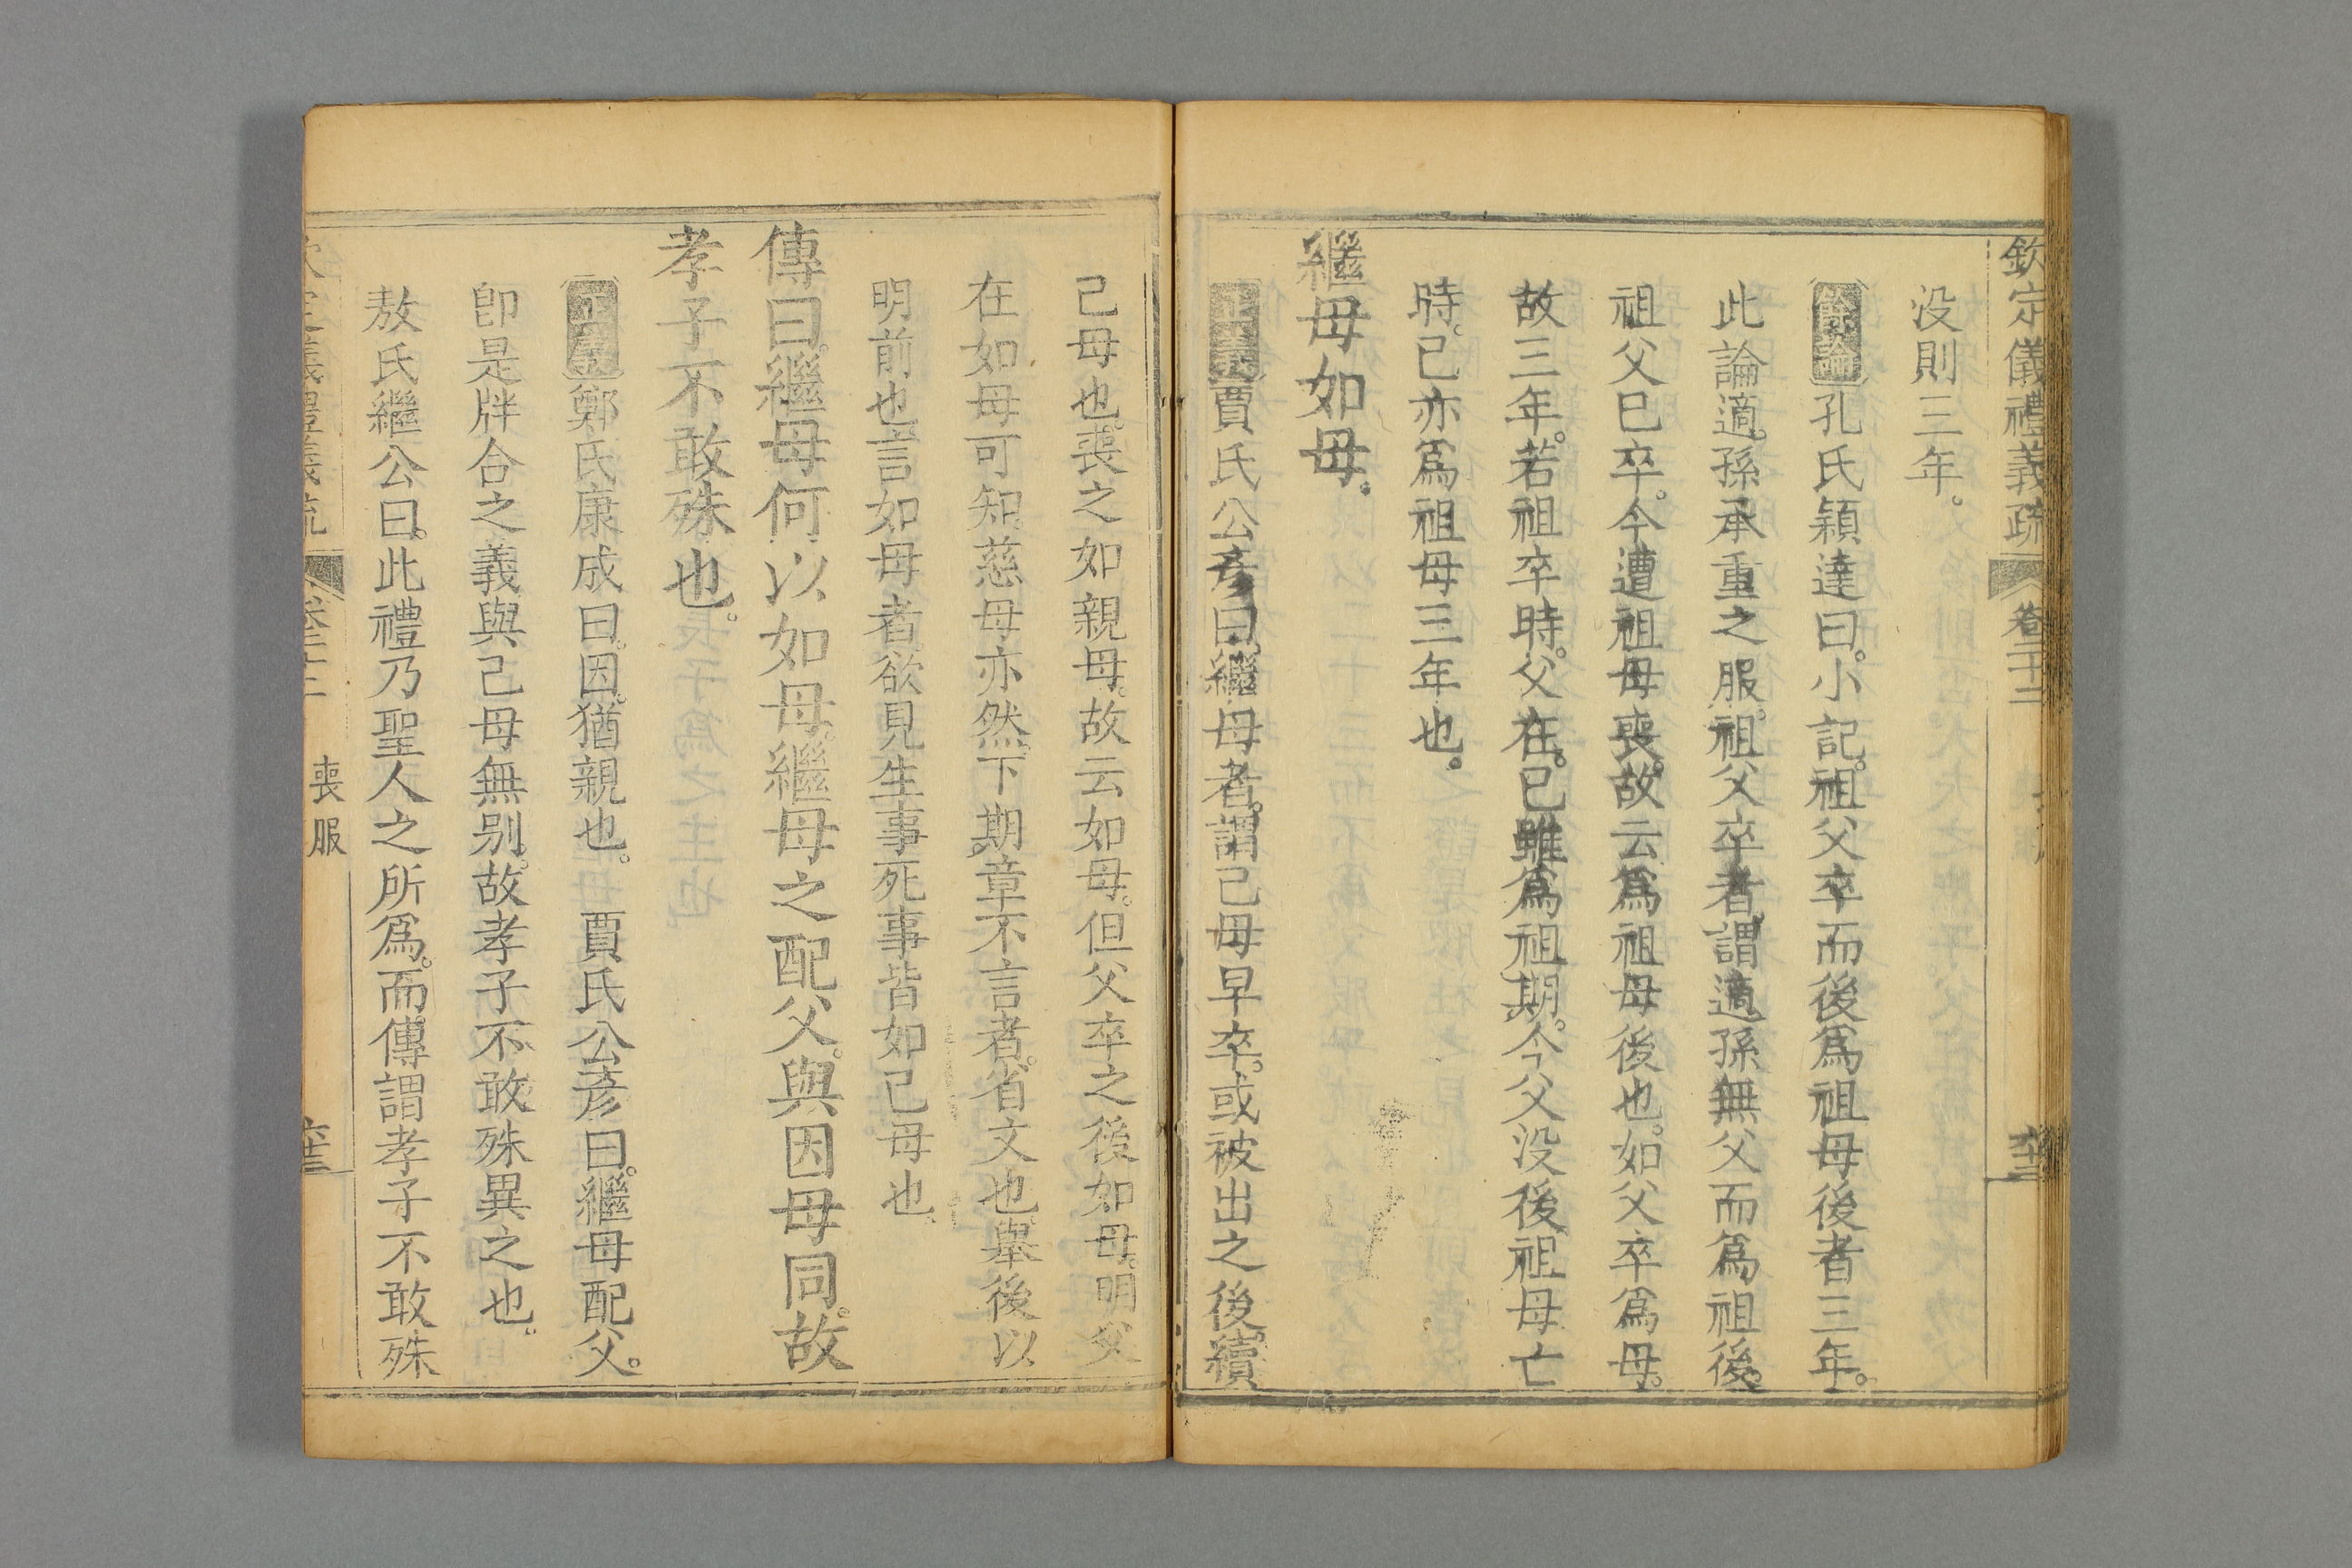 欽定儀禮義疏 卷二十二
没則三年。
餘論孔氏穎達曰。小記。祖父卒而後爲祖母後者三年。
此論適孫承重之服。祖父卒者。謂適孫無父而爲祖後。
祖父已卒。今遭祖母喪。故云爲祖母後也。如父卒爲母。
故三年。若祖卒時。父在。已雖爲祖期。今父没後。祖母亡
時。已亦爲祖母三年也。
繼母如母。
正義賈氏公彥曰。繼母者。謂己母早卒。或被出之後。續
己母也。喪之如親母。故云如母。但父卒之後如母。明父
在如母可知。慈母亦然。下期章不言者。省文也。舉後以
明前也。言如母者。欲見生事死事皆如己母也。
傳曰。繼母何以如母。繼母之配父。與因母同。故
孝子不敢殊也。
正義鄭氏康成曰。因。猶親也。 賈氏公彥曰。繼母配父。
卽是牉合之義。與己母無别。故孝子不敢殊異之也。
敖氏繼公曰。此禮乃聖人之所爲。而傳謂孝子不敢殊
欽定儀禮義疏 卷二十二 喪服